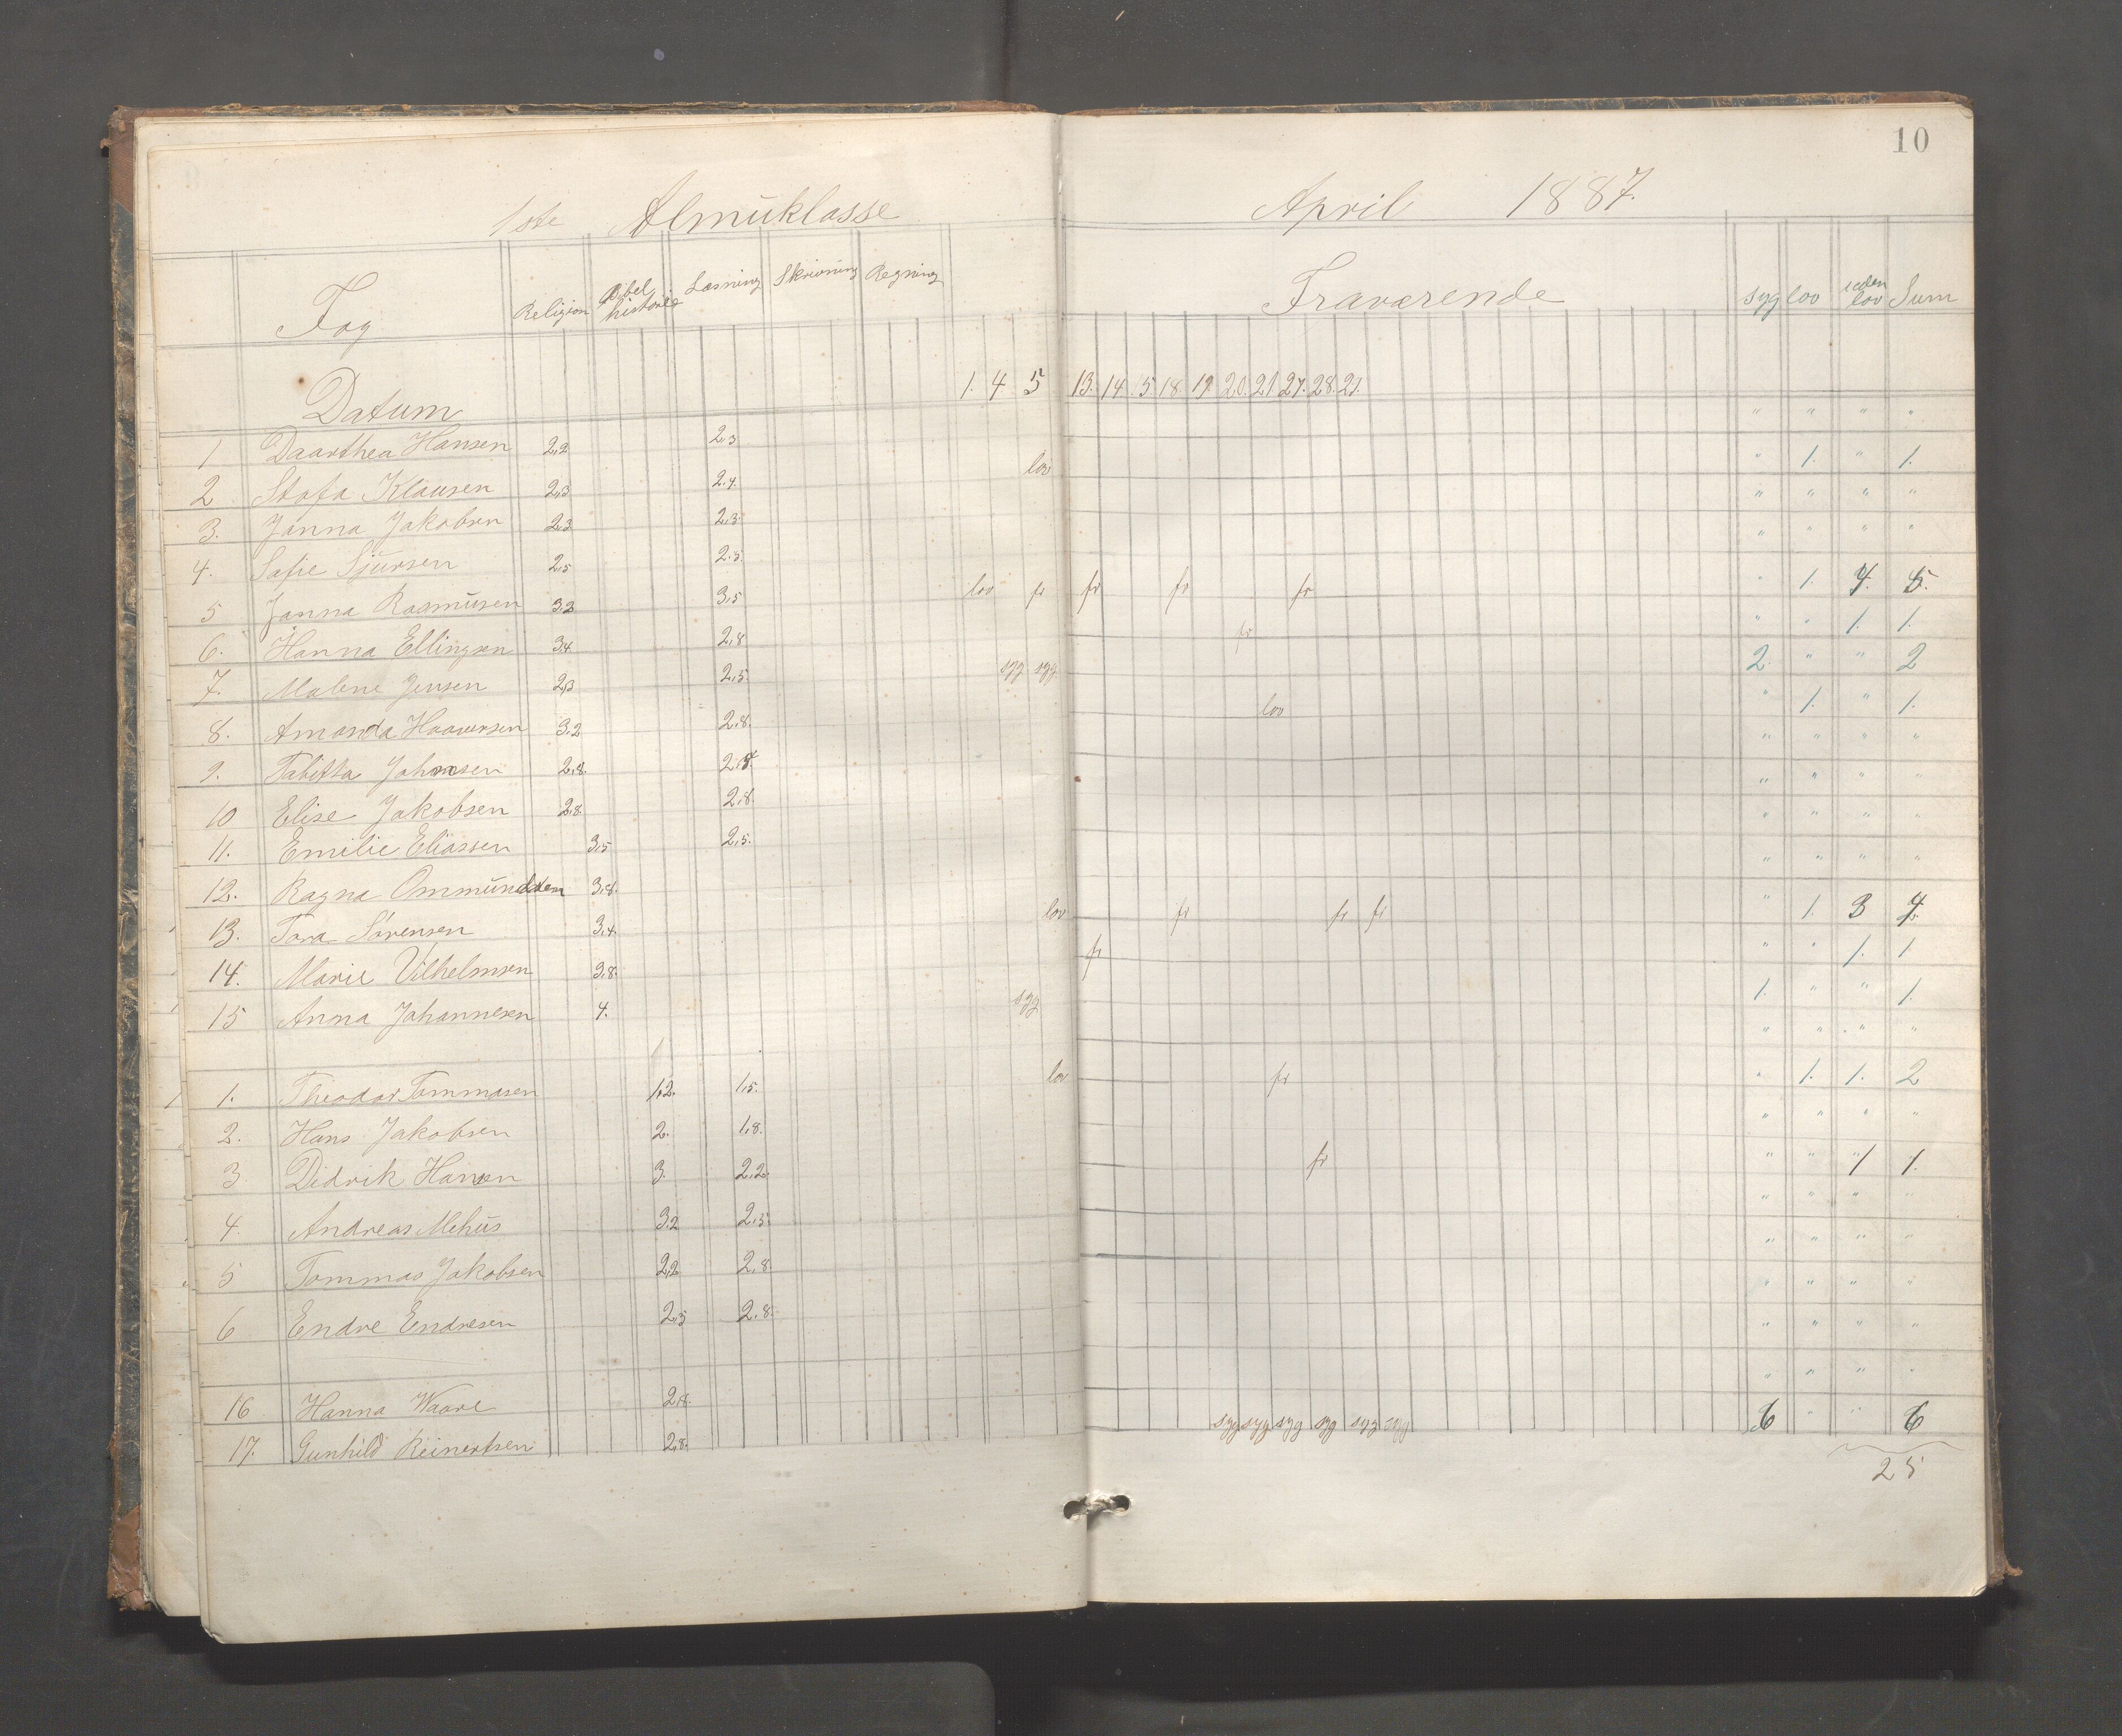 10
1ste Almüklasse April 1887.
Fag Religion Bibel historie Læsning Skrivning Regning Fraværende syg lov uden lov Sum
Datum 1. 4 5 13. 14. 15. 18. 19. 20. 21. 27. 28. 29.
1 Daarthea Hansen 2,2 2,3 " " " "
2 Stafa Klausen 2,3 2.4. lov " 1. " 1.
3. Janna Jakobsen 2,3 2,3 " " " "
4. Sofie Sjursen 2,5 2.5 " " " "
5 Janna Rasmüsen 3,3 3,5 lov fr fr fr fr " 1. 4. 5.
6. Hanna Ellingsen 3,4 2,8 fr " " 1. 1.
7. Malene Jensen 2,3 2,5 syg syg 2. " " 2
8. Amanda Haaversen 3,2 2,8. lov " 1. " 1.
9. Tabitta Johnsen 2,8. " " " "
10 Elise Jakobsen 2,8. 2,8. " " " "
11. Emilie Eliassen 3,5 2,5. " " " "
12. Ragna Ommündsen 3,8. " " " "
13. Tora Sörensen 3,4. lov fr fr fr " 1. 3 4
14. Marie Vilhelmsen 3,8. fr " " 1. 1
15 Anna Johannesen 4. syg 1. " " 1.
" " " "
1. Theodor Tommasen 1,2. 1,5. lov fr " 1. 1. 2
2. Hans Jakobsen 2. 1,8. " " " "
3 Didrik Hansen 3. 2,2. fr " " 1 1.
4. Andreas Mehüs 3,2 2,5. " " " "
5 Tommas Jakobsen 2,2 2,8 " " " "
6 Endre Endresen 2,5 2,8. " " " "
" " " "
16 Hanna Waare 2,8. " " " "
17. Gunhild Reinertsen 2,8. syg syg syg syg syg syg 6 " " 6
25